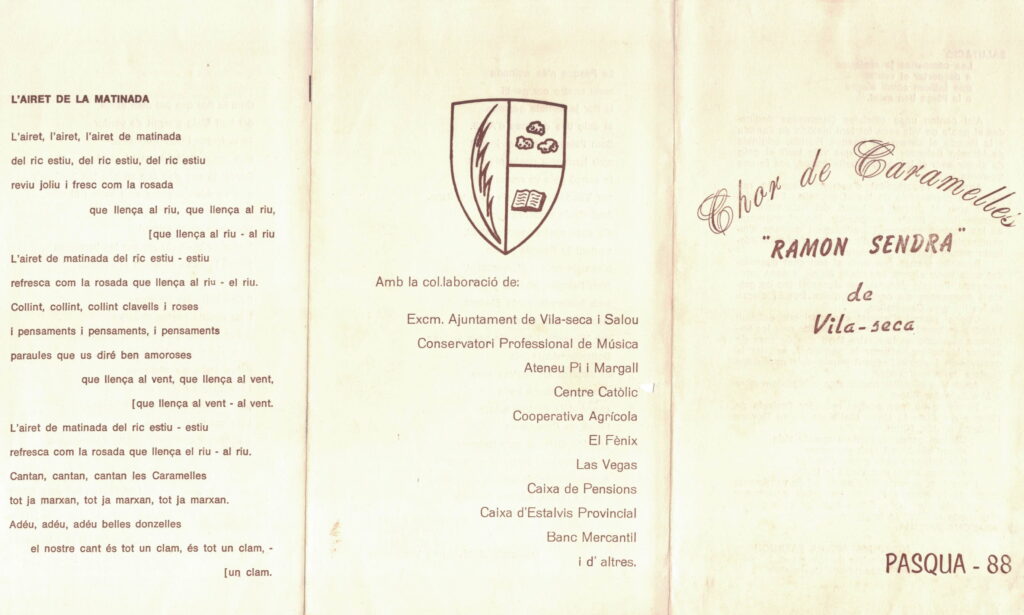 L'AIRET DE LA MATINADA
L'airet, l'airet, l'airet de matinada
del ric estiu, del ric estiu, del ric estiu
reviu joliu i fresc com la rosada
que llença al riu, que llença al riu,
[que llença al riu - al riu
L'airet de matinada del ric estiu - estiu
refresca com la rosada que llença al riu - el riu.
Collint, collint, collint clavells i roses
i pensaments i pensaments, i pensaments
paraules que us diré ben amoroses
que llença al vent, que llença al vent,
[que llença al vent - al vent.
L'airet de matinada del ric estiu - estiu
refresca com la rosada que llença el riu - al riu.
Cantan, cantan, cantan les Caramelles
tot ja marxan, tot ja marxan, tot ja marxan.
Adéu, adéu, adéu belles donzelles
el nostre cant és tot un clam, és tot un clam, -
[un clam.
Amb la col.laboració de:
Excm. Ajuntament de Vila-seca i Salou
Conservatori Professional de Música
Ateneu Pi i Margall
Centre Catòlic
Cooperativa Agrícola
El Fènix
Las Vegas
Caixa de Pensions
Caixa d'Estalvis Provincial
Banc Mercantil
i d' altres.
Chor de Caramelles
"RAMON SENDRA"
de
Vila-seca
PASQUA - 88